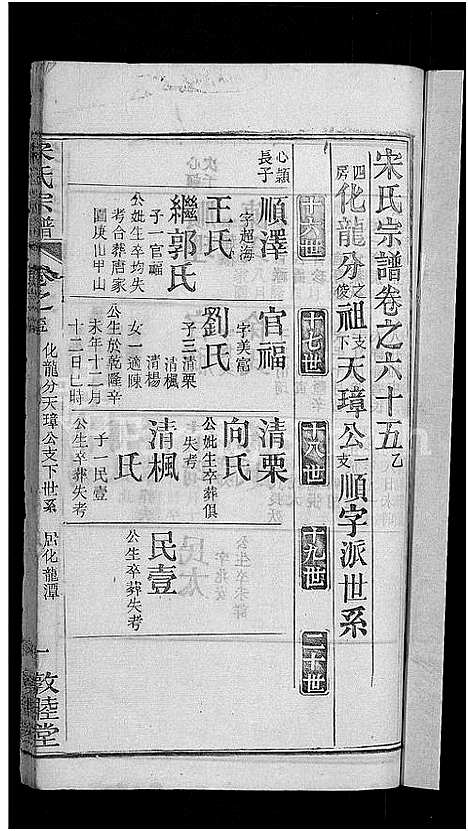 宋氏宗譜卷之六十五乙
四房化龍分之俊祖支下天璋公一支順字派世系
十六世
十七世
十八世
十九世
二十世
心顥長子
順澤
字超海
王氏
繼郭氏
子一官福
公妣生卒均失
考合葬唐家
園庚山甲山
官福
字美富
劉氏
子三清栗
清楓
清楊
女一適陳
公生於乾隆辛
未年十二月
十二日巳時
清栗
向氏
公妣生卒葬俱
失考
清楓
氏
子一民壹
公生卒葬失考
民壹
公生卒葬失考
宋氏宗譜
卷之
化龍分天璋公支下世系
居化龍潭
一
敦睦堂